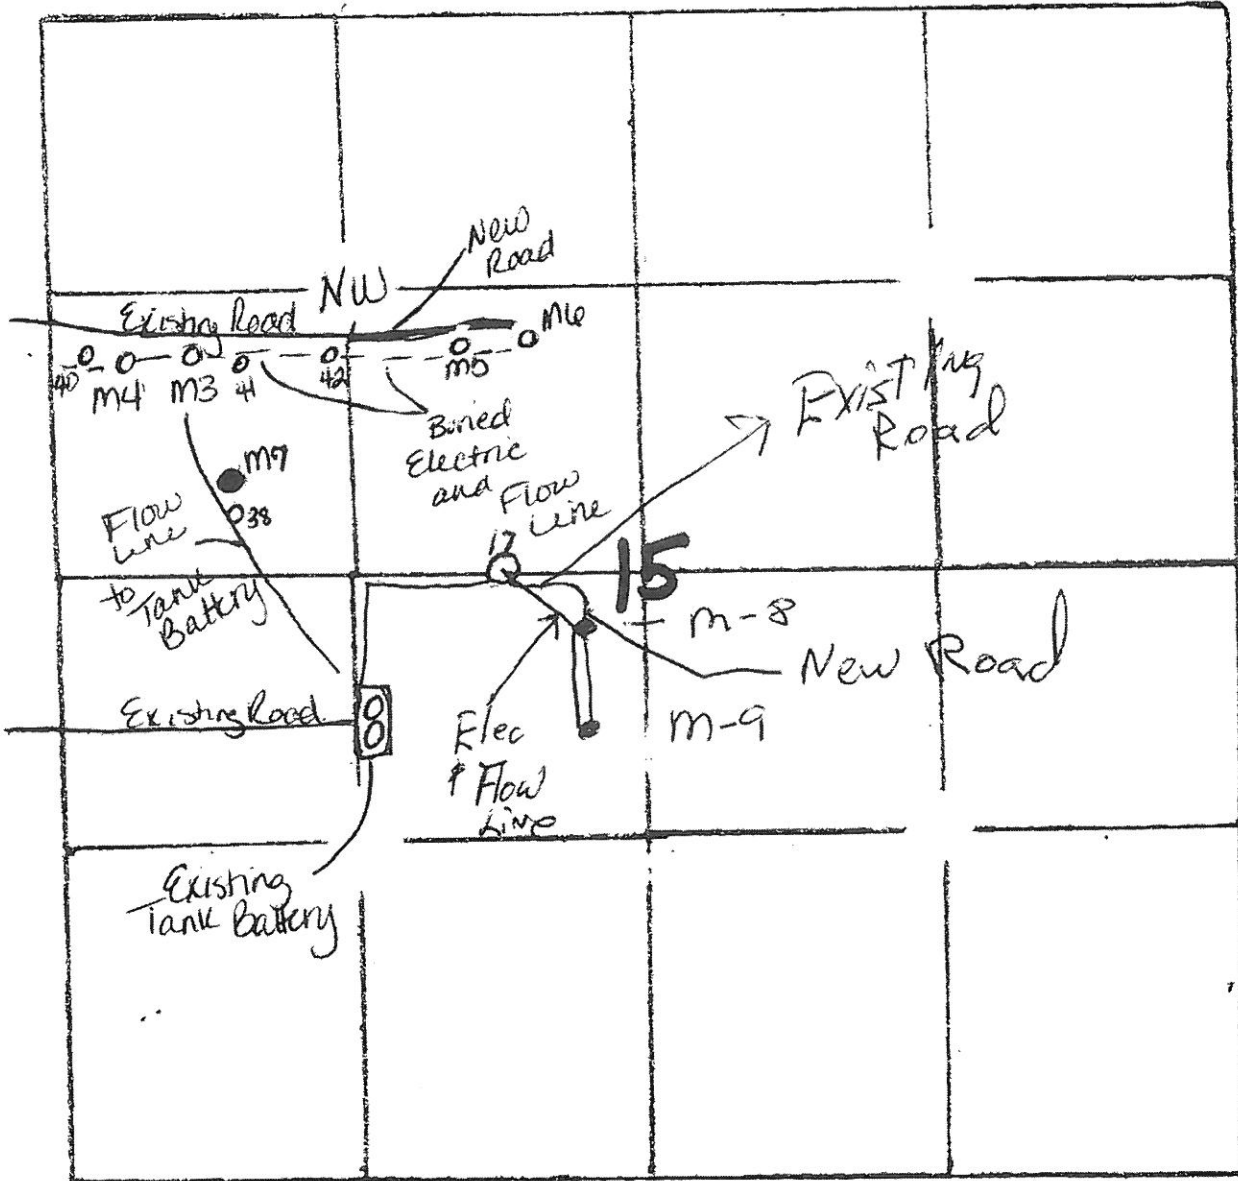 New
Road
NW
Existing Road
M6
40
M4
M3
41
42
M5
Existing
Road
Buried
Electric
and
Flow
Line
M7
38
Flow
Line
to
Tank
Battery
17
15
M-8
New Road
Existing Road
Elec
& Flow
Line
M-9
Existing
Tank Battery